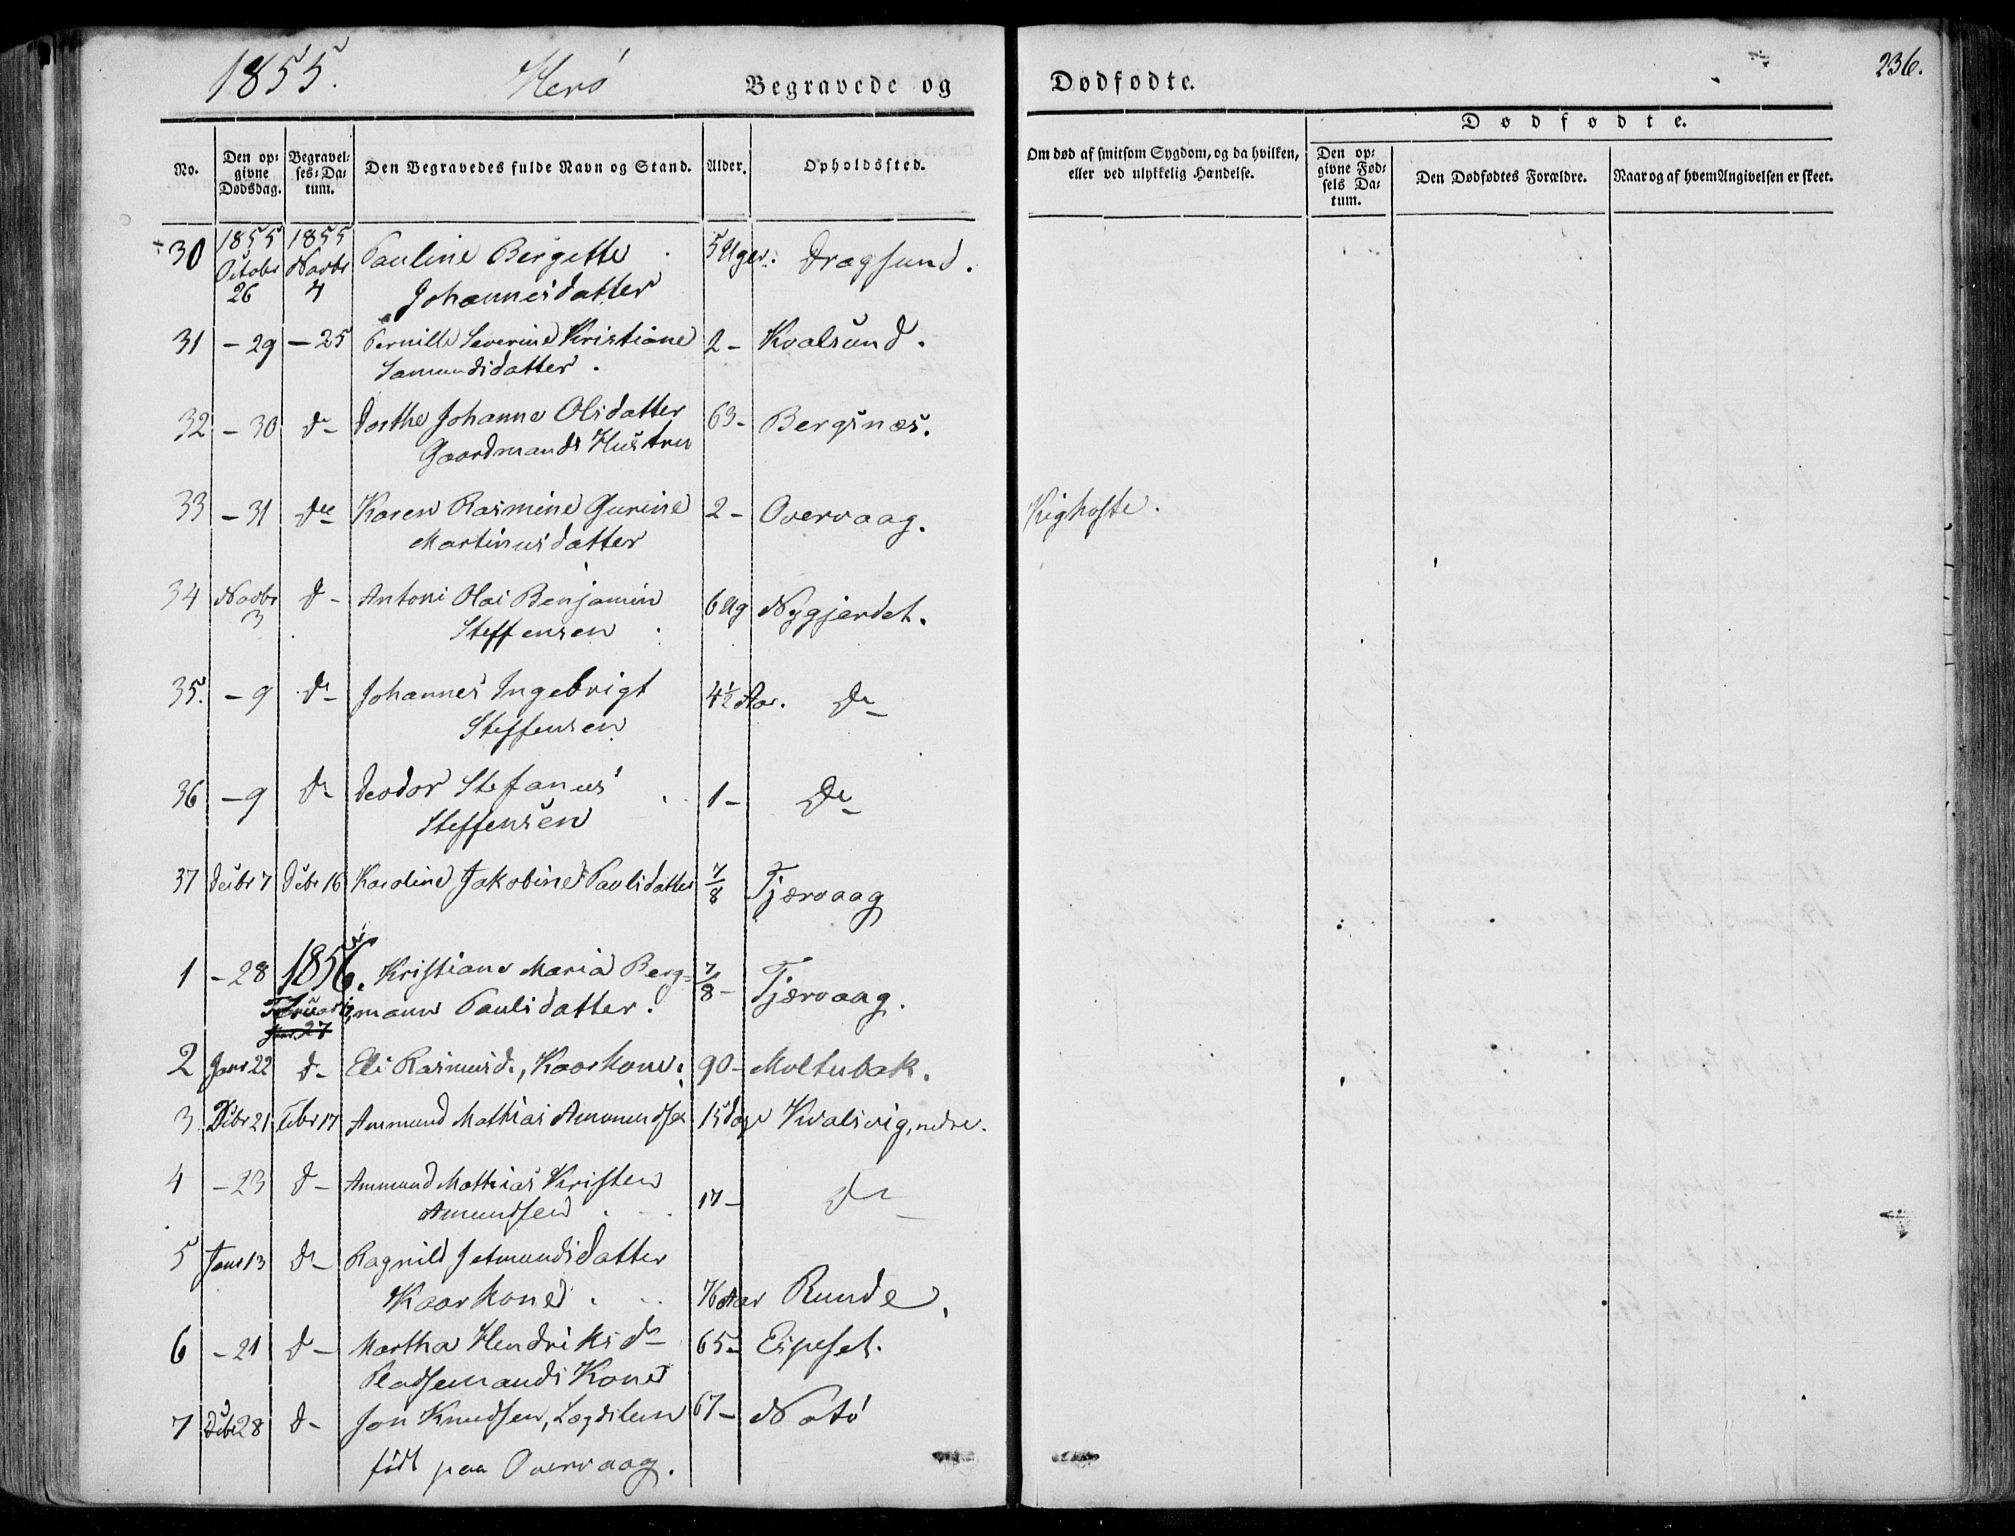 1855. Herö Begravede og Dødfødte. 236.
Dødfødte.
No. Den opgivne Dødsdag. Begravelses-Datum. Den Begravedes fulde Navn og Stand. Alder. Opholdssted. Om død af smitsom Sygdom, og da hvilken, eller ved ulykkelig Hændelse. Den opgivne Fødsels Datum. Den Dødfødtes Forældre. Naar og af hvem Angivelsen er skeet.
30 1855 Octobr 26 1855 Novbr 4 Pauline Bergette 5 Uger. Dragsund.
Johannesdatter
31 - 29 - 25 Pernille Severine Kristiane 2 - Kvalsund.
Samundsdatter.
32 - 30 d- Dorthe Johanne Olsdatter 63 - Bergsnæs.
Gaardmands Hustru
33 - 31 do Karen Rasmine Gurine 2 - Overvaag. Kighoste.
Martinusdatter
34 Novbr 3 d- Antoni Olai Benjamin 6 Ug Nygjerdet.
Steffensen
35. - 9 d- Johannes Ingebrigt 4½ Aar. do
Steffensen
36 - 9 d- Deodor Stefanus 1 - do
Steffensen
37 Decbr 7 Debr 16 Karoline Jakobine Paulsdatter 7/8 Tjærvaag
1 - 28 1856. Kristiane Maria Berg- 7/8 - Tjærvaag.
Februari mann Paulsdatter.
Janr 27
2 Janr 22 d- Eli Rasmusd., Kaarkone. 90 - Moltubak.
3 Debr 21 Febr 17 Ammund Mathias Ammundsen 15 dage Kvalsvig, nedre.
4 - 23 d- Ammund Mathias Kristen 17 - do
Amundsen
5 Janr 13 d- Ragnild Jetmundsdatter
Kaarkone. 76 Aar Runde.
6 - 21 d- Martha Hendriksd- 65 - Espeset.
Pladsemands Kone
7 Debr 28 d- Jon Knudsen, Lægdslem 67 - Notö
födt paa Overvaag.